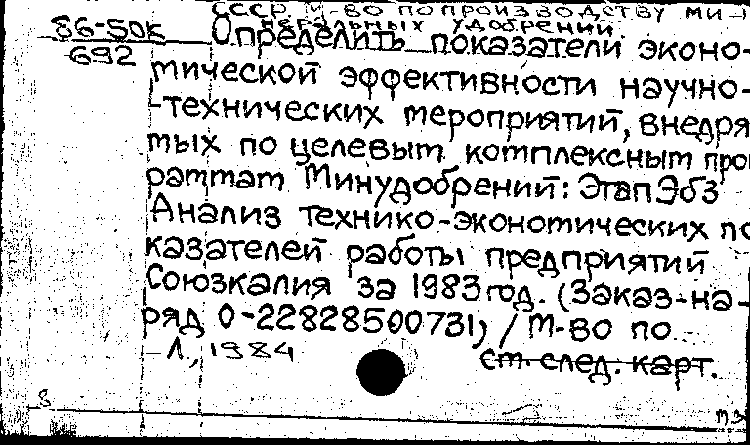 СССР. М-во по производству ми-
неральных удобрений.
86-50к
692
Определить показатели эконо-
мической эффективности научно-
-технических мероприятий, внедря
мых по целевым комплексным про
граммам Минудобрений: Этап Эб3
Анализ технико-экономических по
казателей работы предприятий
Союзкалия за 1983 год. (Заказ-на-
ряд 0-22828500731) / М-во по
Л., 1984
см. след. карт.
8